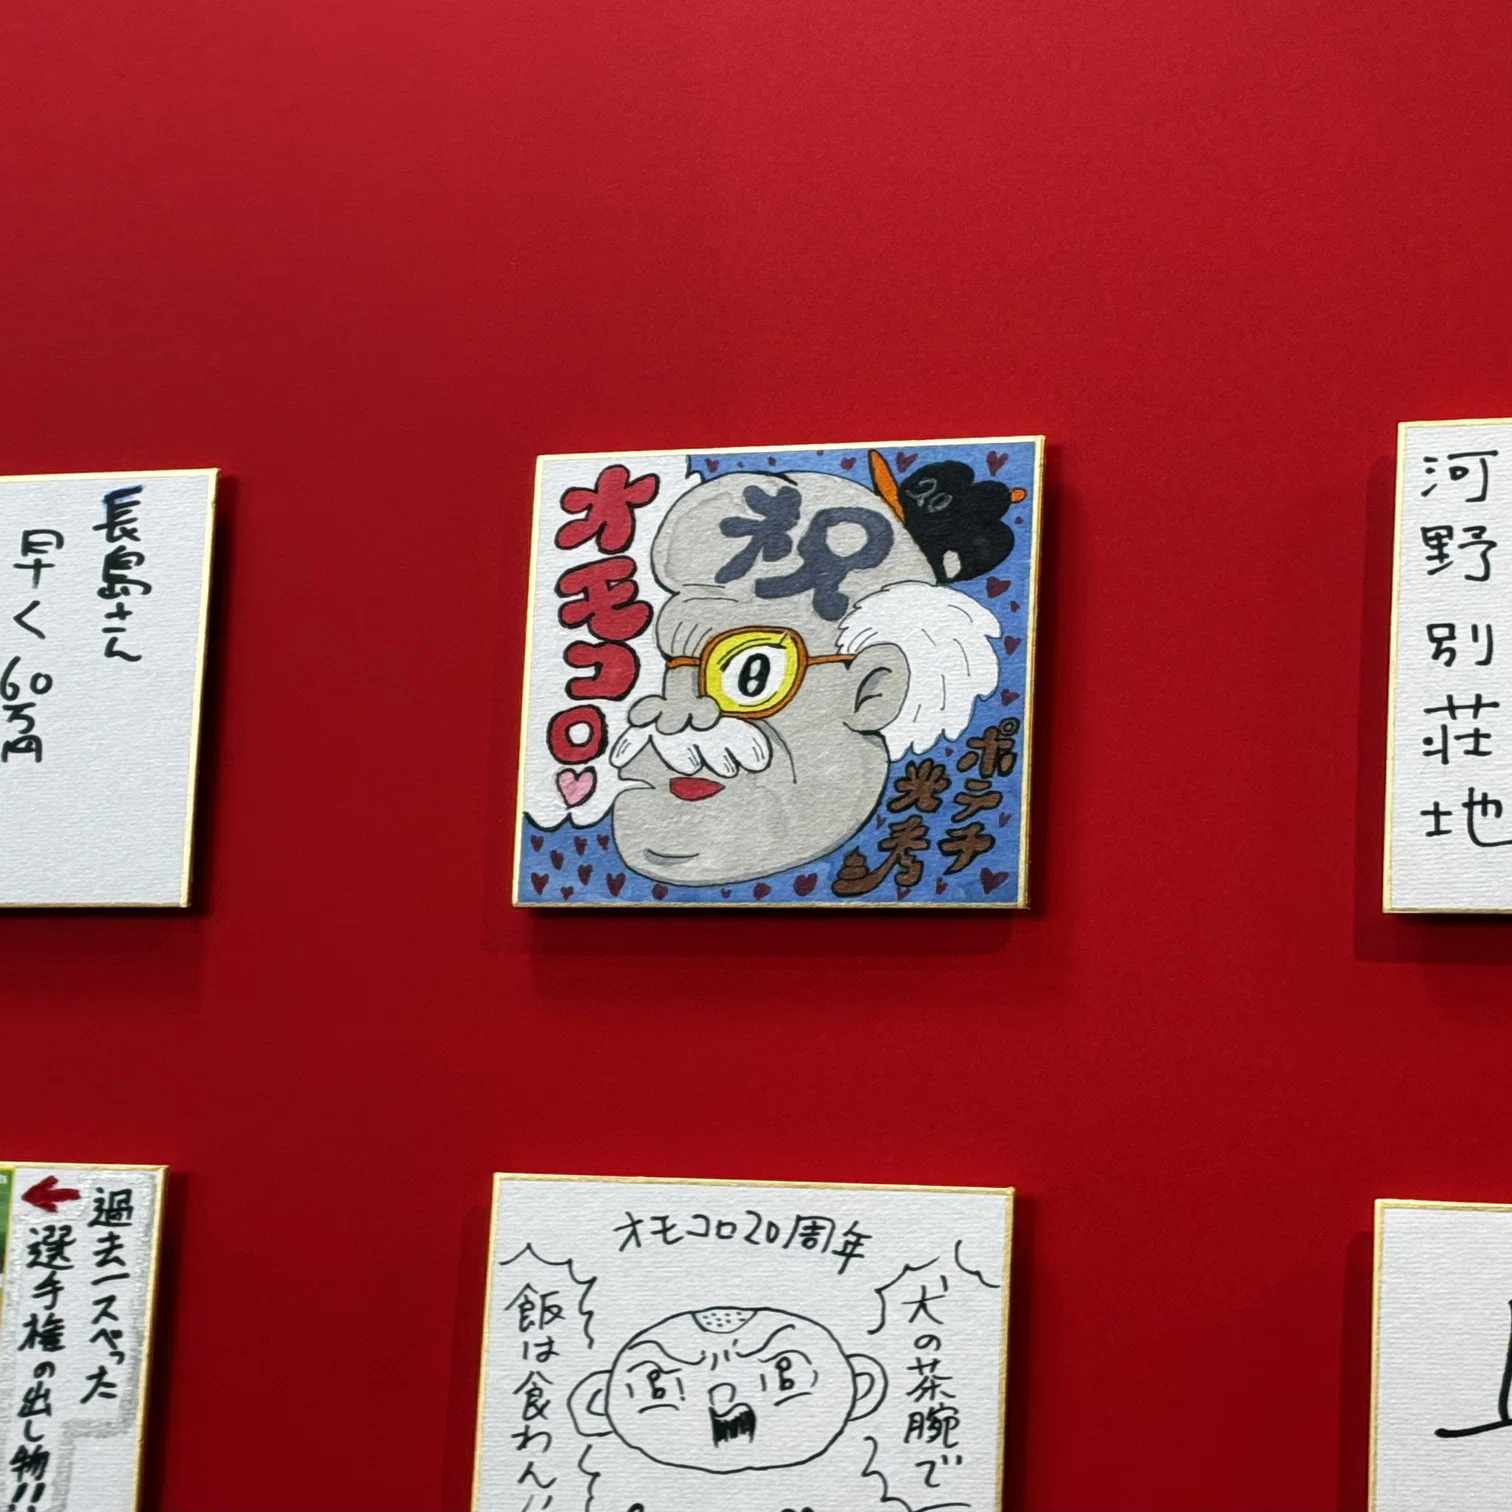 長島さん
早く
60万円
オモコロ♡
祝
20
ポンチ
光秀
河野別荘地
過去一スベった
選手権の出し物!!
オモコロ20周年
犬の茶腕で
飯は食わん!!